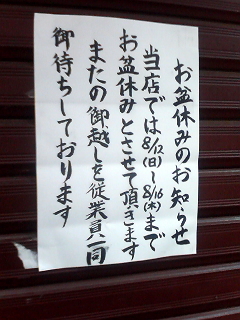 お盆休みのお知らせ
当店では8/12(日)～8/16(木)まで
お盆休みとさせて頂きます
またの御越しを従業員一同
御待ちしております